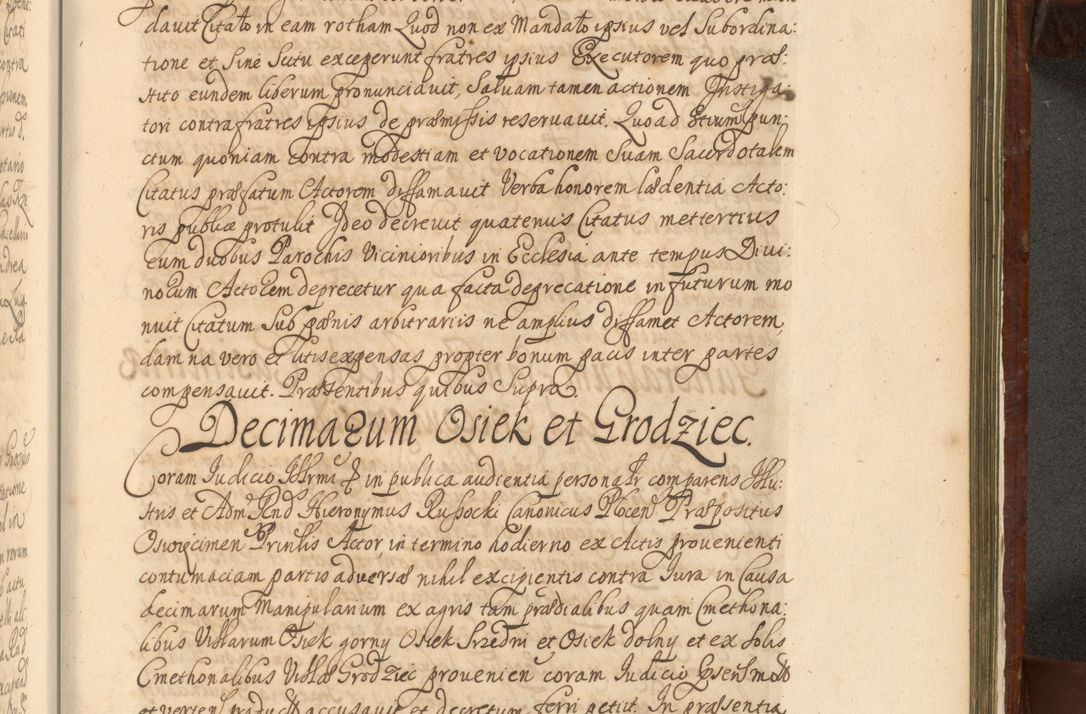 dauit Citato in eam rotham Quod non ex Mandato ipsius vel Subordina:
tione et Sine Scitu exceperunt fratres ipsius Executorem quo præ:
stito eundem liberum pronunciauit, Saluam tamen actionem Instiga:
tori contra fratres ipsius de præmissis reseruauit. Quoad pun:
ctum quoniam contra modestiam et vocationem Suam Sacerdotalem
Citatus præfatum Actorem diffamauit Verba honorem lædentia Acto:
ris publicæ protulit Ideo decreuit quatenus Citatus mettertius
cum duobus Parochis Vicinioribus in Ecclesia ante tempus Diui:
norum Actorem deprecetur qua facta deprecatione in futurum mo
nuit Citatum Sub pænis arbitrariis ne amplius diffamet Actorem,
damna vero et litis expensas propter bonum pacis inter partes
compensauit. Præsentibus quibus Supra.
Decimarum Osiek et Grodziec.
Coram Iudicio Illrmi & in publica audientia personalr comparens Illu:
stris et Adm Rnd Hieronymus Russocki Canonicus Plocen Præpositus
Oswięcimen Prinlis Actor, in termino hodierno ex Actis prouenienti
contumaciam partis aduersæ nihil excipientis contra Iura in Causa
decimarum Manipularium ex agris tam prædialibus quam Cmethona:
libus Villarum Osiek gorny Osiek Srzedni et Osiek dolny et ex Solis
Cmethonalibus Villæ Grodziec prouenien coram Iudicio Ipsens
et verten accusauit et decretum ferri petiit. In præsentia